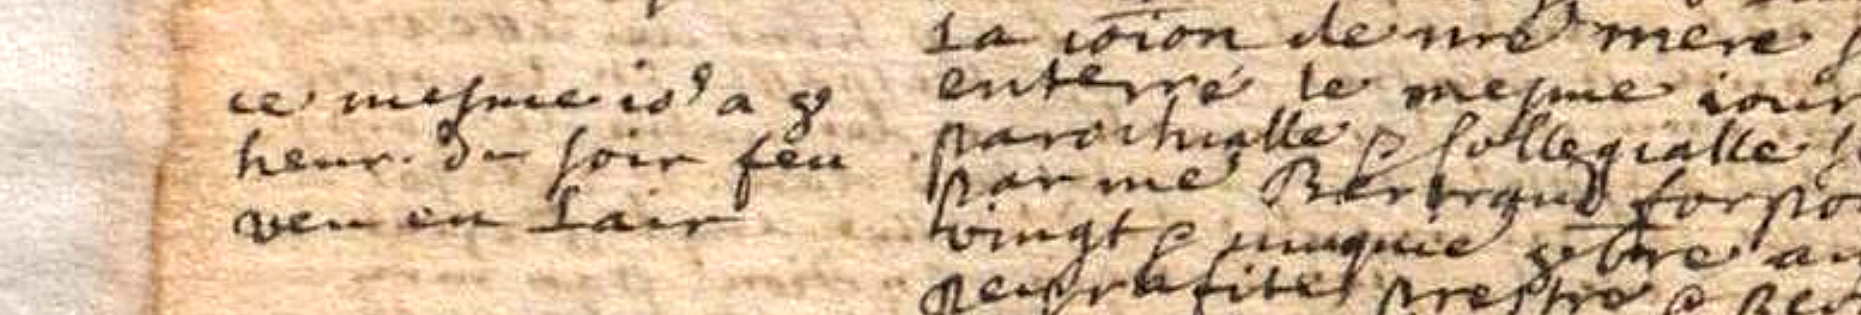 ce mesme io^r a 9
heur. du soir feu
veu en lair
la coion de nre mere
enterré le mesme iour
parochialle & Collegialle
par me Bertrand
vingt &
prestre &